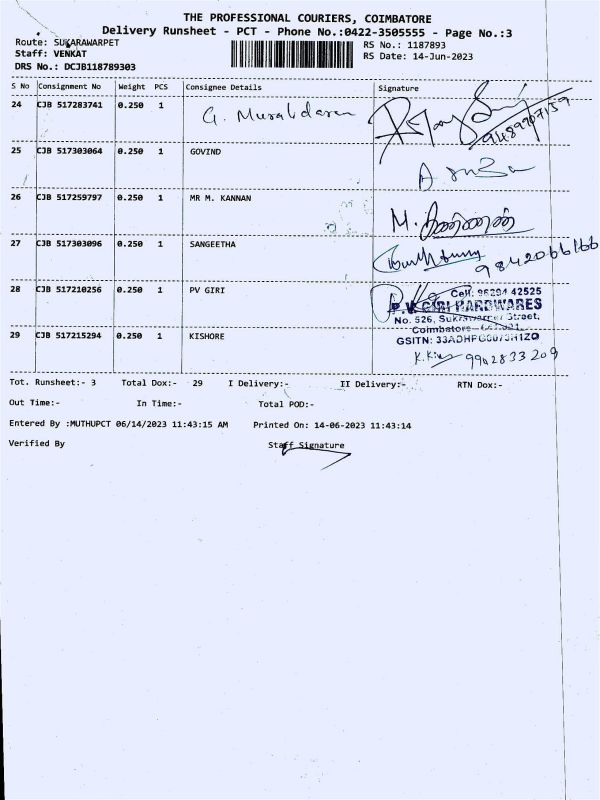 THE PROFESSIONAL COURIERS, COIMBATORE
Delivery Runsheet - PCT - Phone No.:0422-3505555 - Page No.:3
Route: SUKARAWARPET
RS No.: 1187893
Staff: VENKAT
RS Date: 14-Jun-2023
DRS No.: DCJB118789303
S No Consignment No Weight PCS Consignee Details Signature
24 CJB 517283741 0.250 1 G. Muralidaran
9489707159
25 CJB 517303064 0.250 1 GOVIND
26 CJB 517259797 0.250 1 MR M. KANNAN M.
27 CJB 517303096 0.250 1 SANGEETHA 9842066166
28 CJB 517210256 0.250 1 PV GIRI
Cell: 96294 42525
P.V. GIRI HARDWARES
No. 526, Sukrawarpet Street,
Coimbatore
GSITN:
29 CJB 517215294 0.250 1 KISHORE
9942833209
Tot. Runsheet:- 3 Total Dox:- 29 I Delivery:- II Delivery:- RTN Dox:-
Out Time:- In Time:- Total POD:-
Entered By :MUTHUPCT 06/14/2023 11:43:15 AM Printed On: 14-06-2023 11:43:14
Verified By Staff Signature